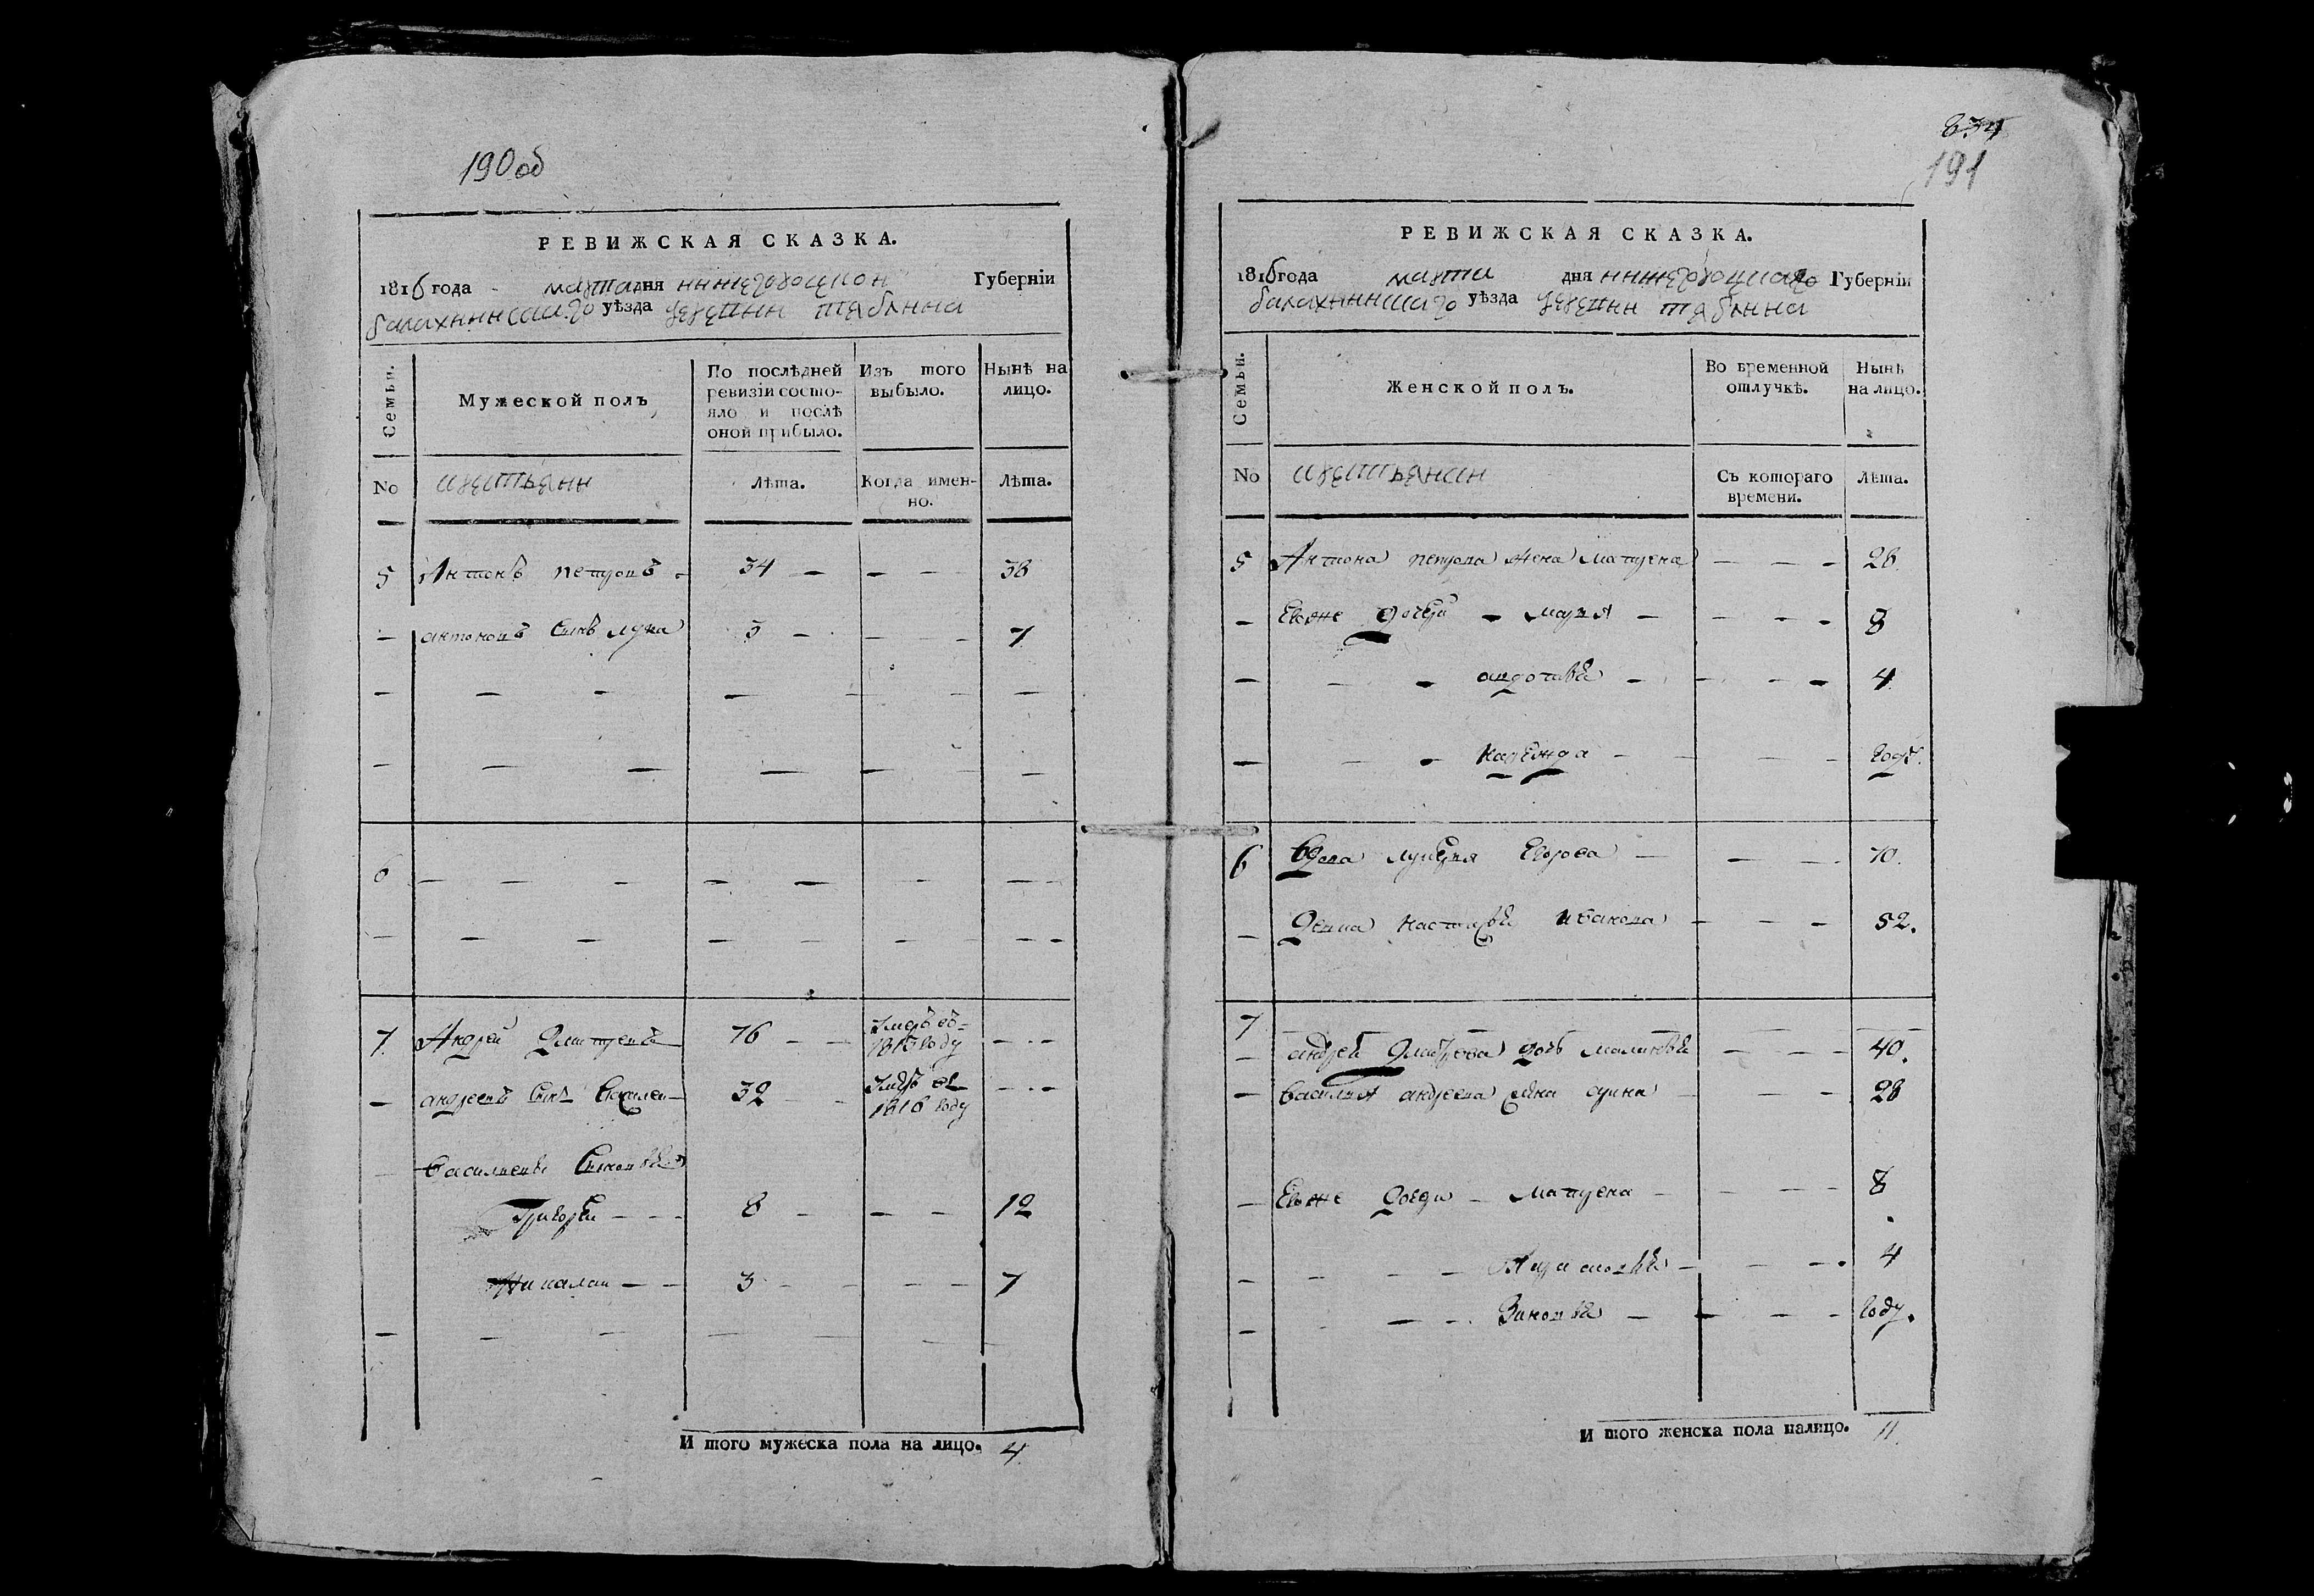 190 об
РЕВИЖСКАЯ СКАЗКА.
1816 года марта дня нижегороцкой Губерніи
балахнинскаго уѣзда деревни
Семьи.
Мужеской полъ
По послѣдней ревизіи состо-
яло и послѣ
оной прибыло.
Изъ того
выбыло.
Нынѣ на
лицо.
No крестьяни Лѣта. Когда имен-
но. Лѣта.
5 Антонъ петровъ 34 — — — 38
— антоновъ сынъ лука 3 — — — 7
6 — — — — — — — — —
7. Андрей Дмитревъ 76 — — умеръ въ
1813 году — — —
— андреевъ сынъ Василеи 32 — — умеръ въ
1816 году — — —
— Васильевы сыновья
Григорей — — — 8 — — — 12
Николаи — — 3 — — — — 7
И того мужеска пола на лицо. 4
834
191
РЕВИЖСКАЯ СКАЗКА.
1816 года марта дня нижегороцкаго Губерніи
балахнинскаго уѣзда деревни
Семьи.
Женской полъ.
Во временной
отлучкѣ.
Нынѣ
на лицо.
No Съ котораго
времени. Лѣта.
5 Антона петрова жена матрена — — — 28
— Евоже дочери — марья — — — — 8
— — — — — — — 4
— — — — — — году.
6 Вдова лукерья Егорова — — — 70.
— настасья иванова — — — 52.
7
— андрея Дмитрева дочь маланья — — — 40.
— василья андреева жена арина — — — 28
— Евоже дочери — матрена — — — — 8
— — — — — — — 4
— — — — Зиновья — — — — году.
И того женска пола налицо. 11.